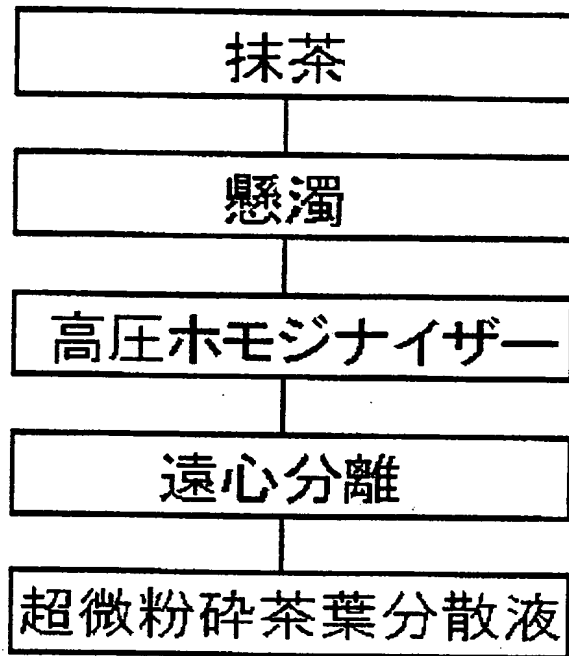 抹茶
懸濁
高圧ホモジナイザー
遠心分離
超微粉砕茶葉分散液